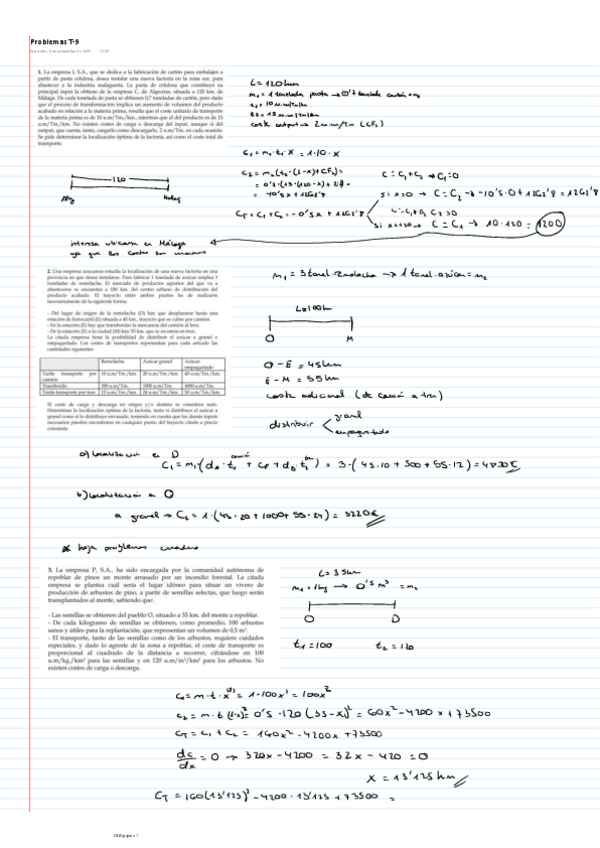 Problemas T-9
1. La empresa I, S.A., que se dedica a la fabricación de cartón para embalajes a
partir de pasta celulosa, desea instalar una nueva factoría en la zona sur, para
abastecer a la industria malagueña. La pasta de celulosa que constituye su
principal input la obtiene de la empresa C, de Algeciras, situada a 120 km. de
Málaga. De cada tonelada de pasta se obtienen 0,7 toneladas de cartón, pero dado
que el proceso de transformación implica un aumento de volumen del producto
acabado en relación a la materia prima, resulta que el coste unitario de transporte
de la materia prima es de 10 u.m/Tm/km., mientras que el del producto es de 15
u.m./Tm./km. No existen costes de carga o descarga del input, aunque sí del
output, que cuesta, tanto, cargarlo como descargarlo, 2 u.m/Tm. en cada ocasión.
Se pide determinar la localización óptima de la factoría, así como el coste total de
transporte.
L = 120km
120
C₁ = m₁·t₁·X = 1·10·x
interesa ubicarse en Málaga
ya que los costes son menores
2. Una empresa azucarera estudia la localización de una nueva factoría en una
provincia en que desea instalarse. Para fabricar 1 tonelada de azúcar emplea 3
toneladas de remolacha. El mercado de productos agrarios del que va a
abastecerse se encuentra a 100 km. del centro urbano de distribución del
producto acabado. El trayecto entre ambos puntos ha de realizarse
necesariamente de la siguiente forma:
- Del lugar de origen de la remolacha (O) hay que desplazarse hasta una
estación de ferrocarril (E) situada a 45 km., trayecto que se cubre por camión.
- En la estación (E) hay que transbordar la mercancía del camión al tren.
- De la estación (E) a la ciudad (M) hay 55 km. que se recorren en tren.
La citada empresa tiene la posibilidad de distribuir el azúcar a granel o
empaquetado. Los costes de transportes para cada artículo las
cantidades siguientes:
Remolacha Azúcar granel Azúcar empaquetado
Tarifa transporte por camión 10 u.m/Tm./km. 20 u.m/Tm./km. 40 u.m/Tm./km.
Transbordo 500 u.m/Tm. 1000 u.m/Tm. 4000 u.m/Tm.
Tarifa transporte por tren 12 u.m/Tm./km. 24 u.m/Tm./km. 50 u.m/Tm./km.
El coste de carga y descarga en origen y/o destino se considera nulo.
Determinar la localización óptima de la factoría, tanto si distribuye el azúcar a
granel como si lo distribuye envasado, teniendo en cuenta que los demás inputs
necesarios pueden encontrarse en cualquier punto del trayecto citado a precio
constante.
m₁ = 3 tonel. remolacha → 1 tonel. azúcar = m₂
L = 100km
O M
O - E = 45km
E - M = 55km
coste adicional (de camión a tren)
distribuir granel
empaquetado
a) localización en D
b) localización en O
a granel → C₂ = 1·(45·20 + 1000 + 55·24) = 3220€
* hoja problemas cuaderno
3. La empresa P, S.A., ha sido encargada por la comunidad autónoma de
repoblar de pinos un monte arrasado por un incendio forestal. La citada
empresa se plantea cuál sería el lugar idóneo para situar un vivero de
producción de arbustos de pino, a partir de semillas selectas, que luego serán
transplantados al monte, sabiendo que:
- Las semillas se obtienen del pueblo O, situado a 35 km. del monte a repoblar.
- De cada kilogramo de semillas se obtienen, como promedio, 100 arbustos
sanos y útiles para la replantación, que representan un volumen de 0,5 m³.
- El transporte, tanto de las semillas como de los arbustos, requiere cuidados
especiales, y dado lo agreste de la zona a repoblar, el coste de transporte es
proporcional al cuadrado de la distancia a recorrer, cifrándose en 100
u.m/kg./km² para las semillas y en 120 u.m/m³/km² para los arbustos. No
existen costes de carga o descarga.
L = 35km
m₁ = 1kg → 0'5 m³ = m₂
O D
t₁ = 100 t₂ = 120
C₂ = m·t (L-x)² = 0'5·120 (35-x)² = 60x² - 4200x + 73500
CT = C₁ + C₂ = 160x² - 4200x + 73500
dc/dx = 0 → 320x - 4200 = 32x - 420 = 0
X = 13'125 km
CT = 160(13'125)² - 4200·13'125 + 73500 =